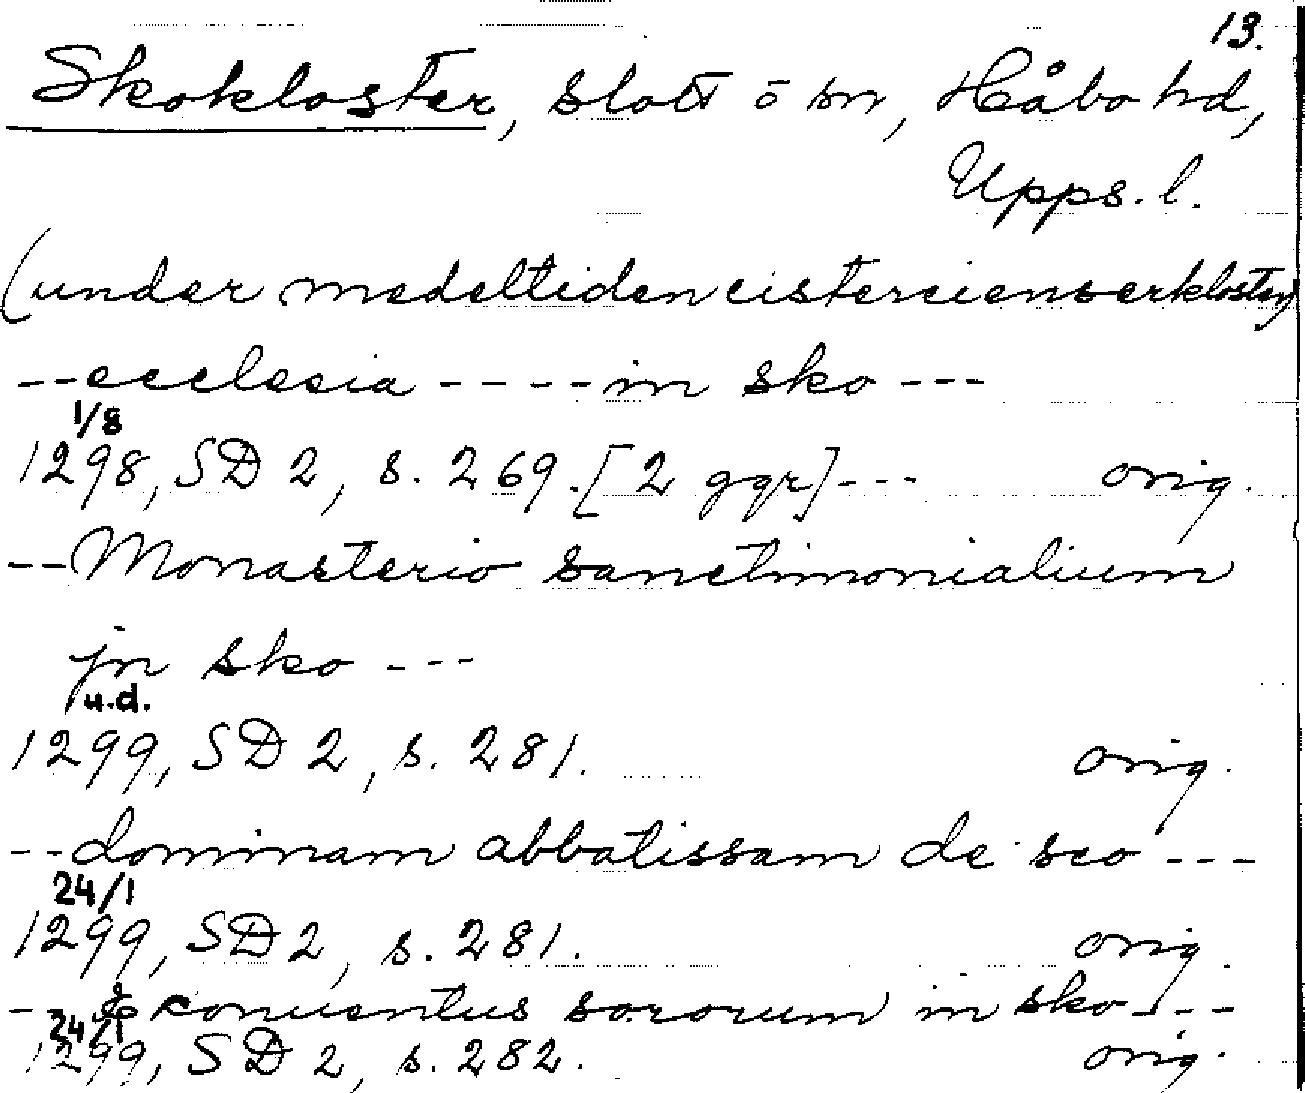 13.
Skokloster, slott o sn, Håbo hd,
Upps. l.
(under medeltiden cistercienserkloster)
--ecclesia ---- in sko ---
1/8
1298, SD 2, s. 269. [2 ggr] --- orig.
-- Monasterio sanctimonialium
jn sko ---
u.d.
1299, SD 2, s. 281. orig.
-- dominam abbatissam de sco ---
24/1
1299, SD 2, s. 281. orig.
-- & conuentus sororum in sko ---
24/1
1299, SD 2, s. 282. orig.